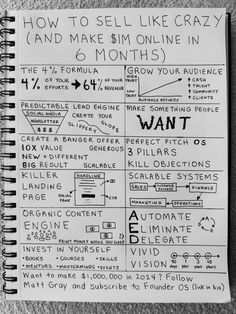 HOW TO SELL LIKE CRAZY
(AND MAKE $1M ONLINE IN
6 MONTHS)
THE 4% FORMULA
4% OF YOUR EFFORTS → 64% OF YOUR REVENUE
GROW YOUR AUDIENCE
REVENUE
AUDIENCE AFFINITY
↑ CASH
↑ TALENT
↑ COMMUNITY
↑ CLIENTS
PREDICTABLE LEAD ENGINE
SOCIAL MEDIA
NEWSLETTER
$$$
CREATE YOUR
SLIPPERY
SLOPE
MAKE SOMETHING PEOPLE
WANT
CREATE A BANGER OFFER
10X VALUE GENEROUS
NEW + DIFFERENT
BIG RESULT SCALABLE
PERFECT PITCH OS
3 PILLARS
KILL OBJECTIONS
KILLER
LANDING
PAGE
HEADLINE
SOCIAL PROOF
CTA
SCALABLE SYSTEMS
SALES
FINANCE
MARKETING
OPERATIONS
ORGANIC CONTENT
ENGINE
PRINT MONEY WHILE YOU SLEEP
AUTOMATE
ELIMINATE
DELEGATE
INVEST IN YOURSELF
• BOOKS • COURSES • SKILLS
• MENTORS • MASTERMINDS • EVENTS
VIVID
VISION
Want to make $1,000,000 in 2024? Follow
Matt Gray and subscribe to Founder OS (link in bio)